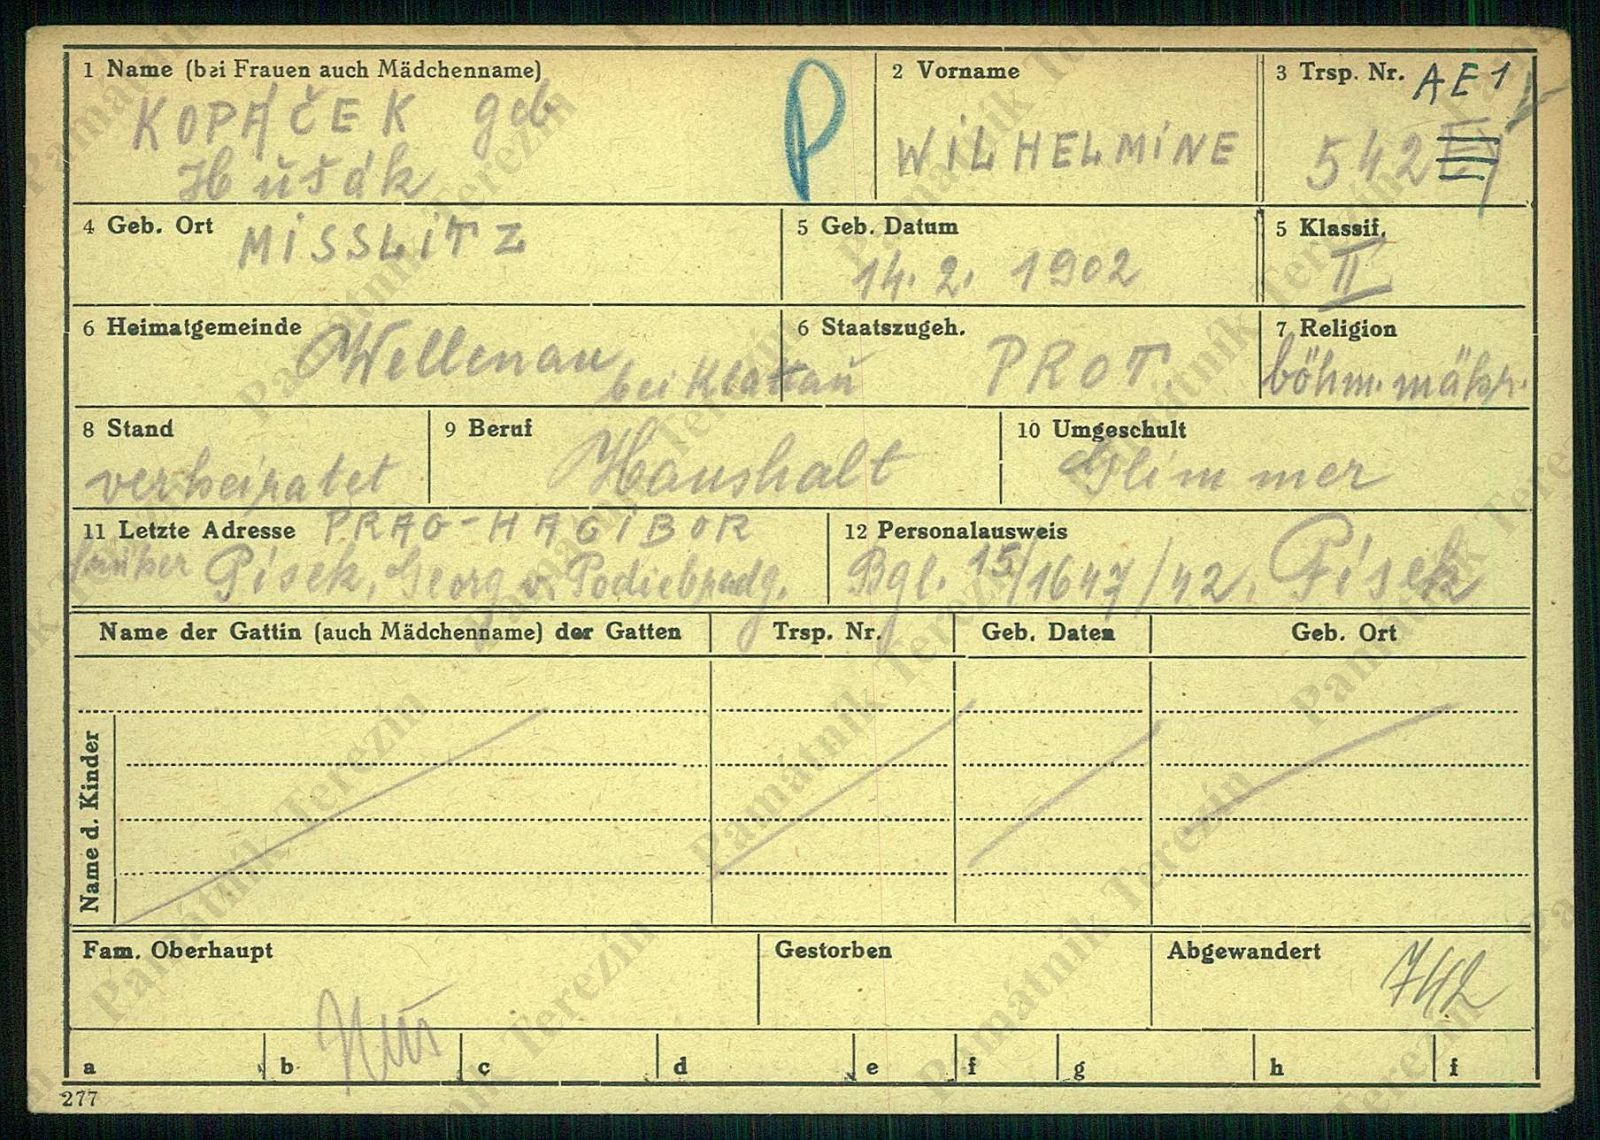 1 Name (bei Frauen auch Mädchenname)
KOPÁČEK geb
Hušák
P
2 Vorname
WILHELMINE
3 Trsp. Nr. AE1
542
4 Geb. Ort MISSLITZ
5 Geb. Datum
14. 2. 1902
5 Klassif.
II
6 Heimatgemeinde
Wellenau
bei Klattau
6 Staatszugeh.
PROT.
7 Religion
böhm. mähr.
8 Stand
verheiratet
9 Beruf
Haushalt
10 Umgeschult
Glimmer
11 Letzte Adresse PRAG-HAGIBOR
früher Písek, Georg v. Podiebradg.
12 Personalausweis
Bgl. 15/1647/42. Písek
Name der Gattin (auch Mädchenname) der Gatten
Trsp. Nr.
Geb. Daten
Geb. Ort
Name d. Kinder
Fam. Oberhaupt
Gestorben
Abgewandert
a
b
c
d
e
f
g
h
f
277
Památník Terezín